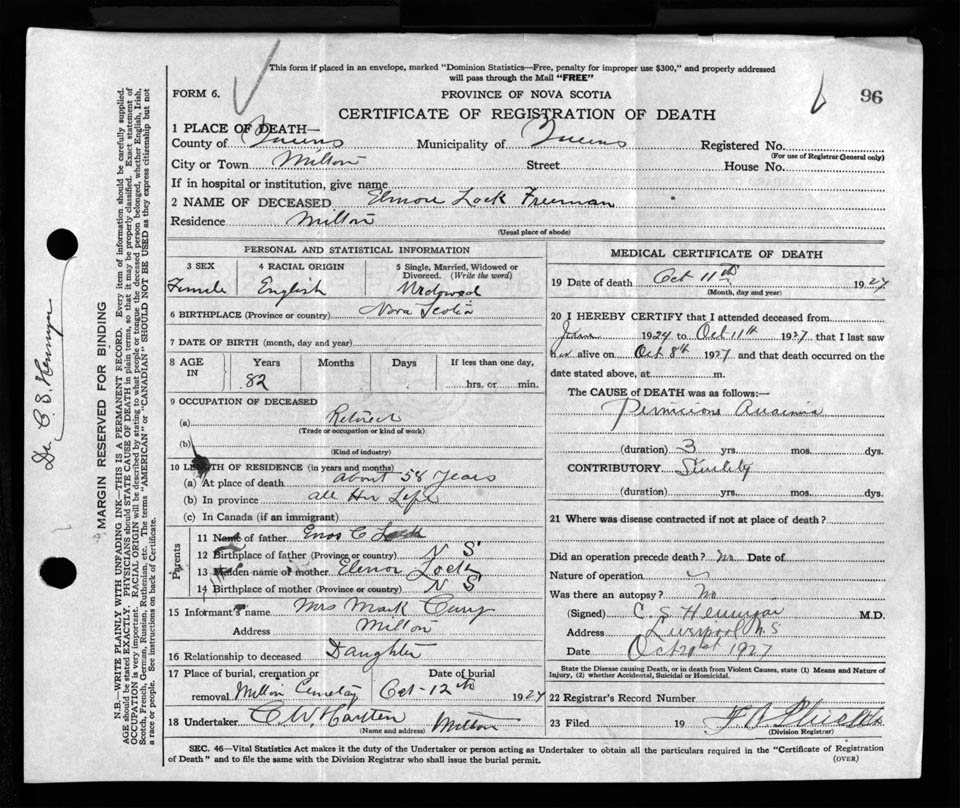 This form if placed in an envelope, marked "Dominion Statistics—Free, penalty for improper use $300," and properly addressed
will pass through the Mail "FREE"
FORM 6.
PROVINCE OF NOVA SCOTIA
96
CERTIFICATE OF REGISTRATION OF DEATH
1 PLACE OF DEATH—
County of Queens Municipality of Queens Registered No.
(For use of Registrar General only)
City or Town Milton Street House No.
If in hospital or institution, give name
2 NAME OF DECEASED Elmore Lock Freeman
Residence Milton
(Usual place of abode)
PERSONAL AND STATISTICAL INFORMATION
3 SEX 4 RACIAL ORIGIN 5 Single, Married, Widowed or Divorced. (Write the word)
Female English Widowed
6 BIRTHPLACE (Province or country) Nova Scotia
7 DATE OF BIRTH (month, day and year)
8 AGE IN Years Months Days If less than one day,
82 hrs. or min.
9 OCCUPATION OF DECEASED
(a) Retired
(Trade or occupation or kind of work)
(b)
(Kind of industry)
10 LENGTH OF RESIDENCE (in years and months)
(a) At place of death about 58 Years
(b) In province all Her Life
(c) In Canada (if an immigrant)
Parents
11 Name of father Enos C Lock
12 Birthplace of father (Province or country) N S
13 Maiden name of mother Elenor Lock
14 Birthplace of mother (Province or country) N S
15 Informant's name Mrs Mark
Address Milton
16 Relationship to deceased Daughter
17 Place of burial, cremation or removal Milton Cemetay Date of burial Oct-12th 1927
18 Undertaker C W Harten Milton
(Name and address)
MEDICAL CERTIFICATE OF DEATH
19 Date of death Oct 11th 1927
(Month, day and year)
20 I HEREBY CERTIFY that I attended deceased from
1924 to Oct 11th 1927 that I last saw
her alive on Oct 8th 1927 and that death occurred on the
date stated above, at m.
The CAUSE OF DEATH was as follows:—
Pernicious Anaemia
(duration) 3 yrs. mos. dys.
CONTRIBUTORY Senility
(duration) yrs. mos. dys.
21 Where was disease contracted if not at place of death?
Did an operation precede death? No Date of
Nature of operation
Was there an autopsy? No
(Signed) C. S. Hennigar M.D.
Address Liverpool N.S
Date 1927
State the Disease causing Death, or in death from Violent Causes, state (1) Means and Nature of
Injury, (2) whether Accidental, Suicidal or Homicidal.
22 Registrar's Record Number
23 Filed 19
(Division Registrar)
SEC. 46—Vital Statistics Act makes it the duty of the Undertaker or person acting as Undertaker to obtain all the particulars required in the "Certificate of Registration
of Death" and to file the same with the Division Registrar who shall issue the burial permit.
(OVER)
MARGIN RESERVED FOR BINDING
N.B.—WRITE PLAINLY WITH UNFADING INK—THIS IS A PERMANENT RECORD. Every item of information should be carefully supplied.
AGE should be stated EXACTLY. PHYSICIANS should STATE CAUSE OF DEATH in plain terms, so that it may be properly classified. Exact statement of
OCCUPATION is very important. RACIAL ORIGIN will be described by stating to what people or tongue the deceased person belonged, whether English, Irish,
Scotch, French, German, Russian, Ruthenian, etc. The terms "AMERICAN" or "CANADIAN" SHOULD NOT BE USED as they express citizenship but not
a race or people. See instructions on back of Certificate.
Dr. C. S. Hennigar